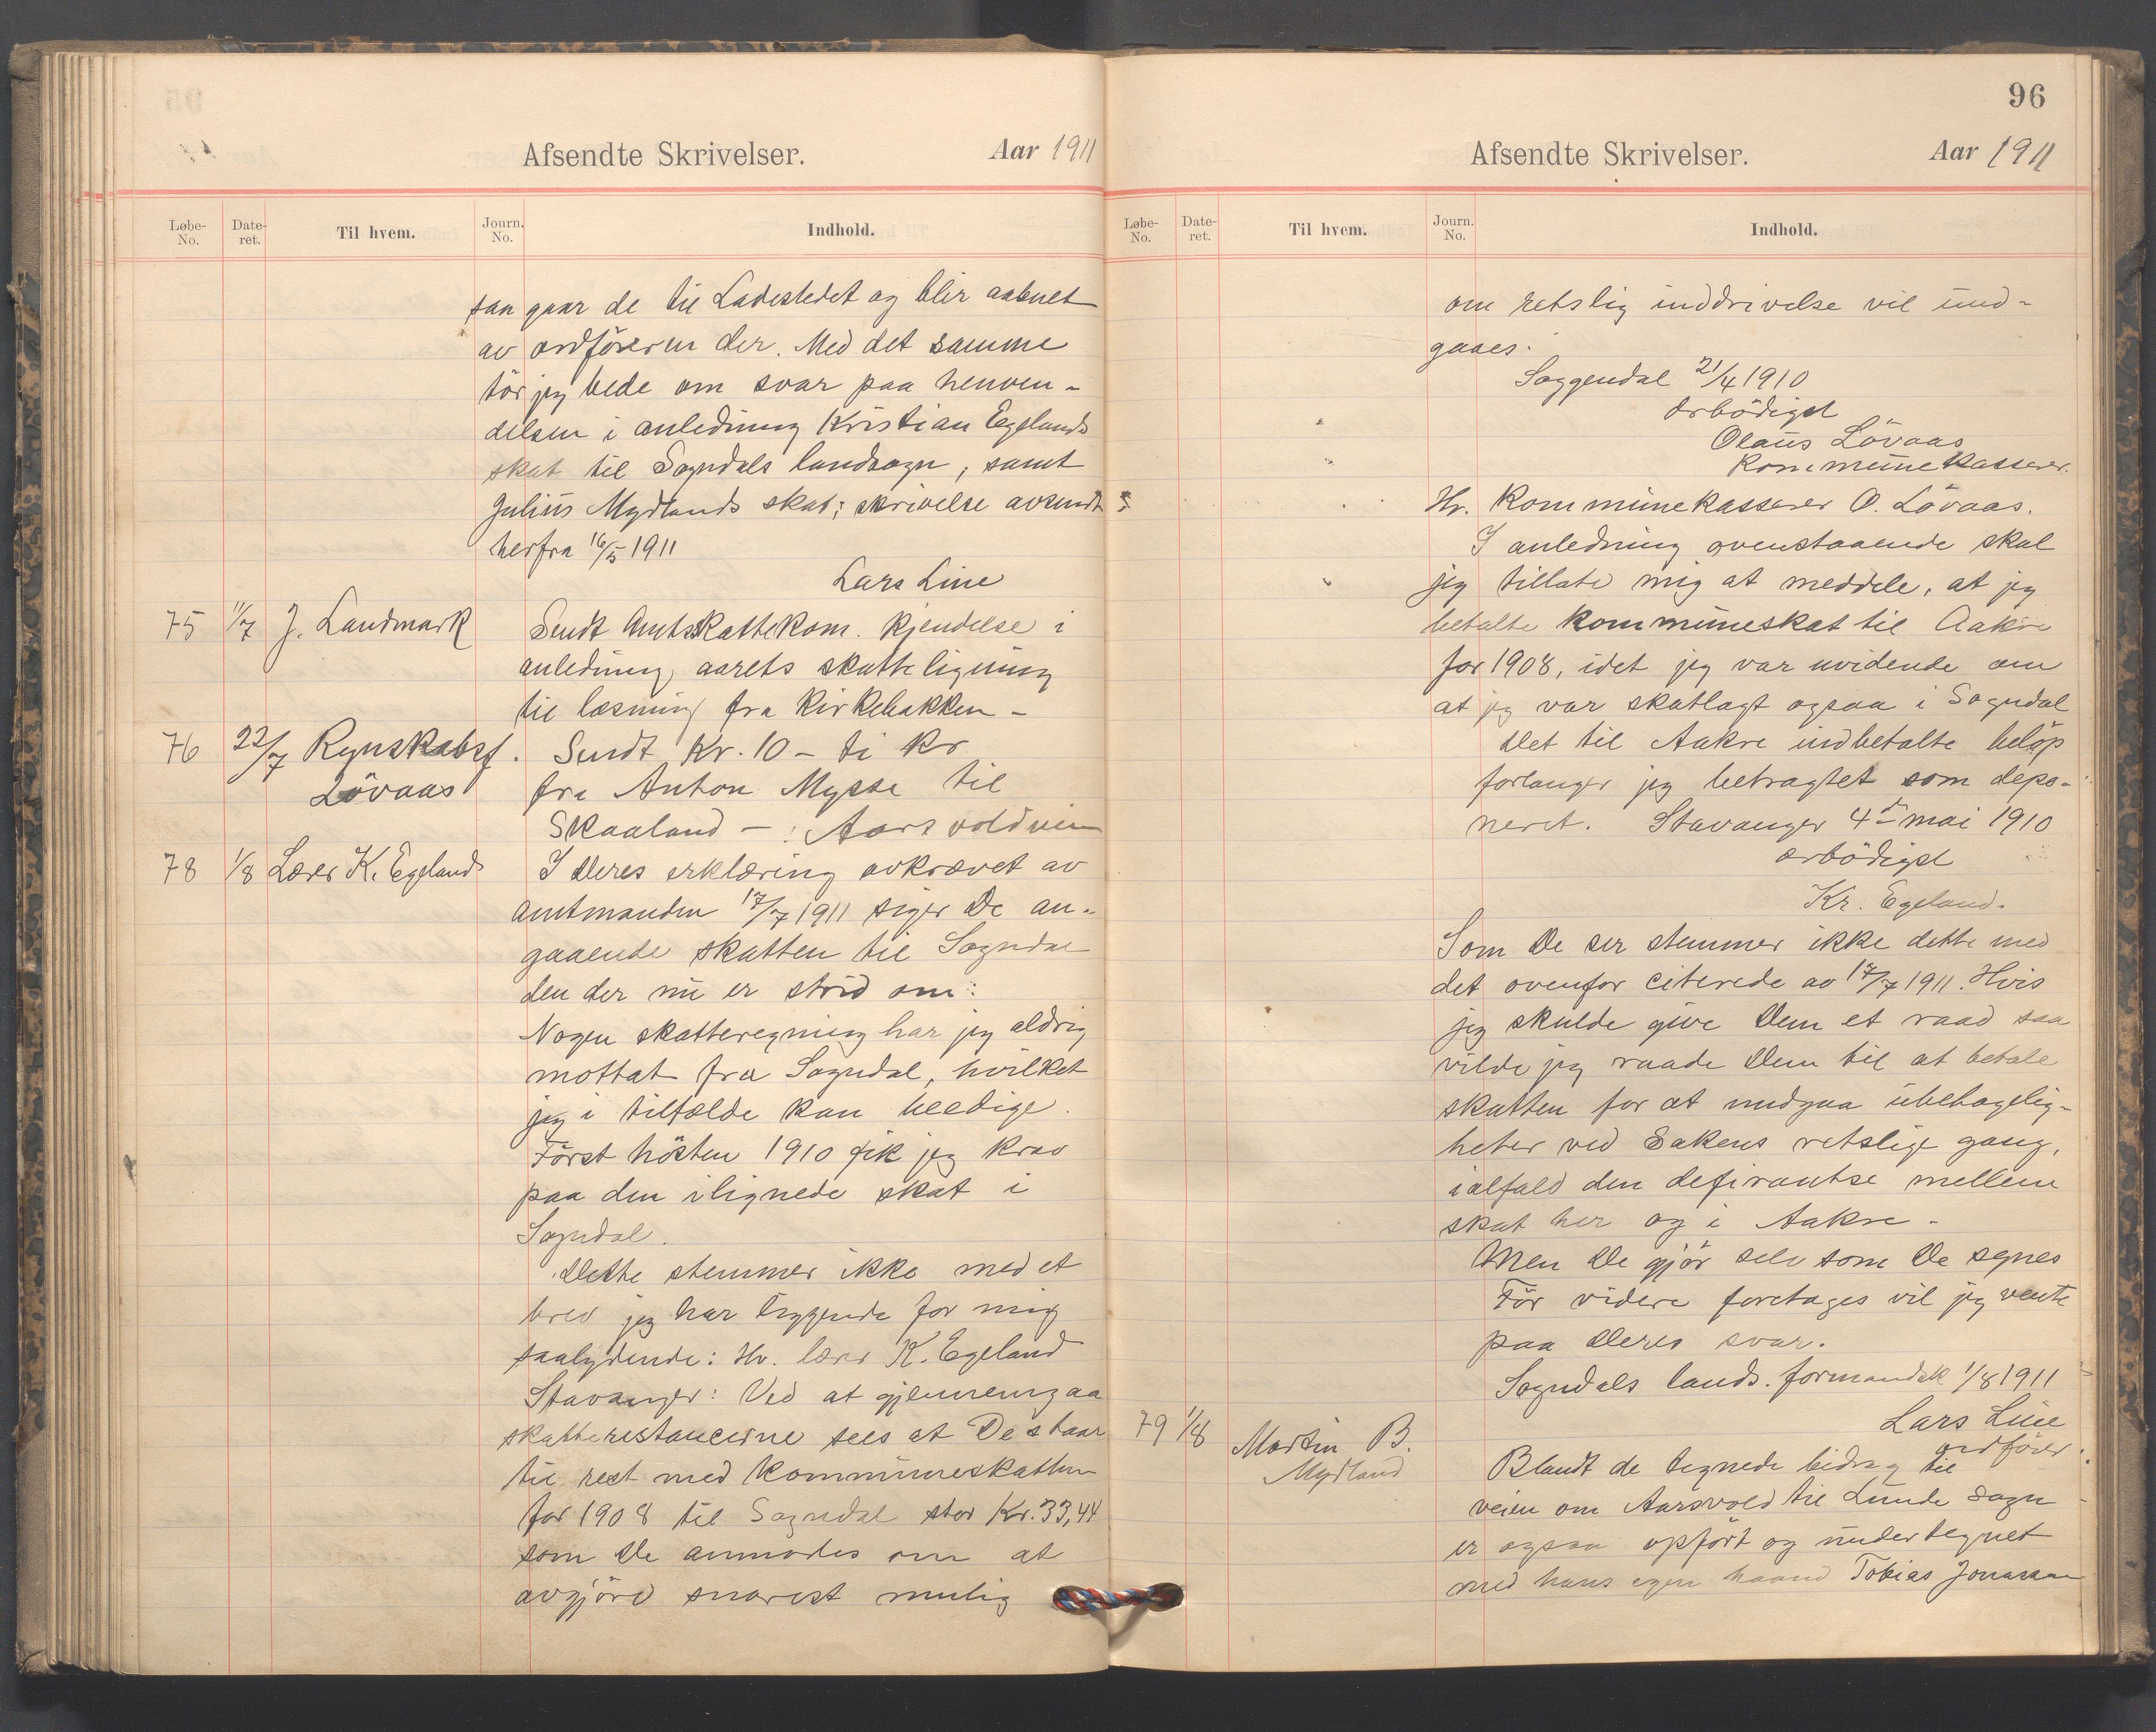 Afsendte Skrivelser. Aar 1911
Løbe-No. Date-ret. Til hvem. Journ. No. Indhold.
saa gaar de til Ladestedet og blir aabnet
av ordföreren der. Med det samme
tör jeg bede om svar paa henven-
delsen i anledning Kristian Egelands
skat til Sogndals landsogn, samt
Julius Mydlands skat; skrivelse avsendt
herfra 16/5 1911
Lars Line
75 11/7 J. Landmark Sendt Amtsskattekom. Kjendelse i
anledning aarets skatteligning
til læsning fra Kirkebakken -
76 22/7 Regnskabsf. Sendt Kr. 10 - ti Kr
Lövaas fra Anton Mysse til
Skaaland - : Aarsvoldveien
78 1/8 Lærer K. Egeland I Deres erklæring avkrævet av
amtmanden 17/7 1911 siger De an-
gaaende skatten til Sogndal
den der nu er strid om:
Nogen skatteregning har jeg aldrig
mottat fra Sogndal, hvilket
jeg i tilfælde kan beedige.
Først hösten 1910 fik jeg krav
paa den ilignede skat i
Sogndal.
Dette stemmer ikke med et
brev jeg har liggende for mig
saalydende: Hr. lærer K. Egeland
Stavanger: Ved at gjennemgaa
skatterestancerne sees at De staar
til rest med Kommuneskatten
for 1908 til Sogndal stor Kr. 33,44
som De anmodes om at
avgjöre snarest mulig
96
Afsendte Skrivelser. Aar 1911
Løbe-No. Date-ret. Til hvem. Journ. No. Indhold.
om retslig inddrivelse vil und-
gaaes.
Soggendal 21/4 1910
ærbödigst
Olaus Lövaas
Kommunekasserer.
Hr. Kommunekasserer O. Lövaas.
I anledning ovenstaaende skal
jeg tillate mig at meddele, at jeg
betalte kommuneskat til Aakre
for 1908, idet jeg var uvidende om
at jeg var skatlagt ogsaa i Sogndal
Det til Aakre indbetalte belöp
forlanger jeg betragtet som depo-
neret. Stavanger 4de mai 1910
ærbödigst
Kr. Egeland.
Som De ser stemmer ikke dette med
det ovenfor citerede av 17/7 1911. Hvis
jeg skulde give Dem et raad saa
vilde jeg raade Dem til at betale
skatten for at undgaa ubehagelig-
heter ved Sakens retslige gang,
ialfald den defirantse mellem
skat her og i Aakre -
Men De gjör selv som De synes
Før videre foretages vil jeg vente
paa Deres svar.
Sogndals lands. formandsk 1/8 1911
Lars Line
ordförer.
79 1/8 Martin B. Mydland Blandt de tegnede bidrag til
veien om Aarsvold til Lunde sogn
er ogsaa opfört og undertegnet
med hans egen haand Tobias Jonassen